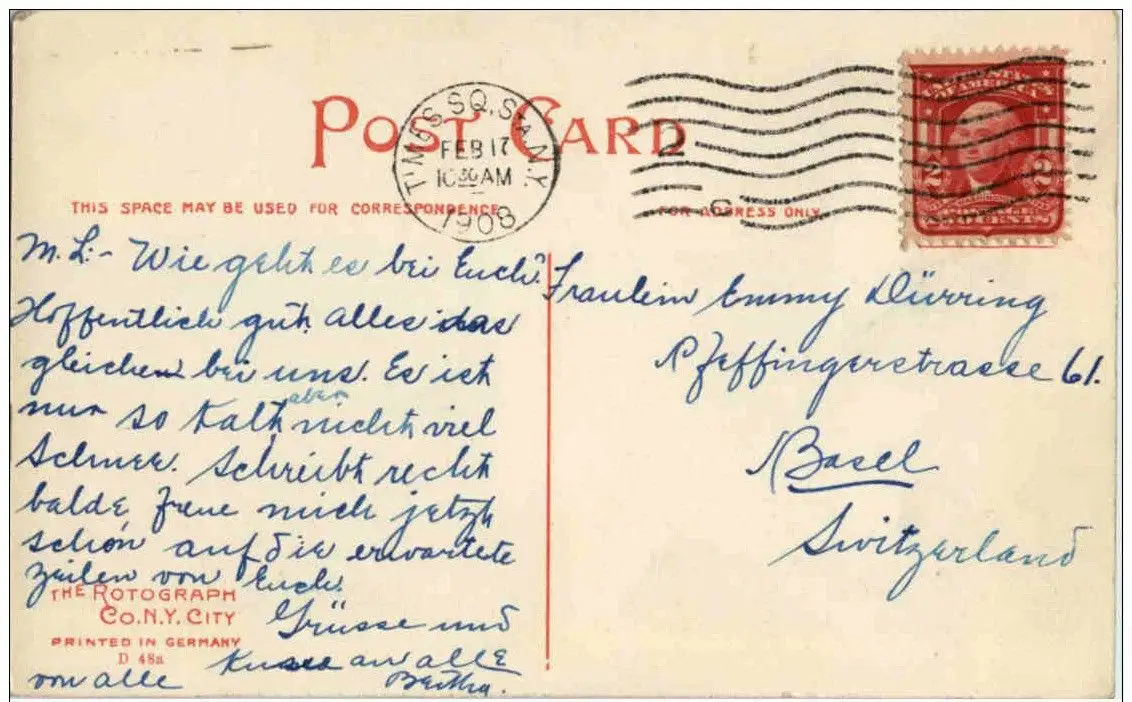 POST CARD
TIMES SQ. STA. N.Y.
FEB 17
10 30 AM
1908
2
6
THIS SPACE MAY BE USED FOR CORRESPONDENCE
FOR ADDRESS ONLY
M. L:- Wie geht es bei Euch?
Hoffentlich gut. alles das
gleichen bei uns. Es ist
nur so Kalt aber nicht viel
Schnee. Schreibt recht
balde, freue mich jetzt
schon auf die erwartete
zeilen von Euch.
Grüsse und
Küsse an alle
von alle Bertha.
Fraulein Emmy Dürring
Pfeffingerstrasse 61.
Basel
Switzerland
THE ROTOGRAPH
CO. N.Y. CITY
PRINTED IN GERMANY
D 48a